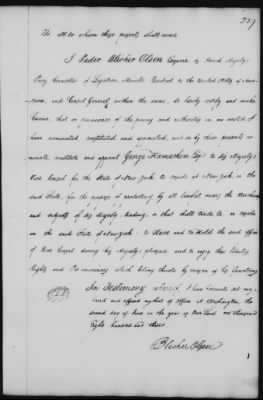 217
To all to whom these presents shall come
I Peder Blicher Olsen Esquire, by Danish Majesty's
Privy Counsellor of Legation, Minister Resident to the United States of Ame-
rica, and Consul General within the same, do hereby certify and make
known, that in pursuance of the powers and authority in me vested, I
have nominated constituted and appointed, and do by these presents no-
minate constitute and appoint George Hammeken Esqr to be his Majesty's
Vice Consul for the State of New York, to reside at New York in the
said State, for the purpose of protecting by all lawful means the merchants
and subjects of his Majesty, trading, or that shall trade to, or reside
in the said State of New York: to Have and to Hold the said office
of Vice Consul during his Majesty's pleasure, and to enjoy the liberties
Rights and Pre-eminences which belong thereto by reason of his functions
In Testimony whereof, I have hereunto set my
hand and affixed my Seal of Office at Washington the
second day of June in the year of Our Lord one thousand
Eight hundred and three
Blicher Olsen